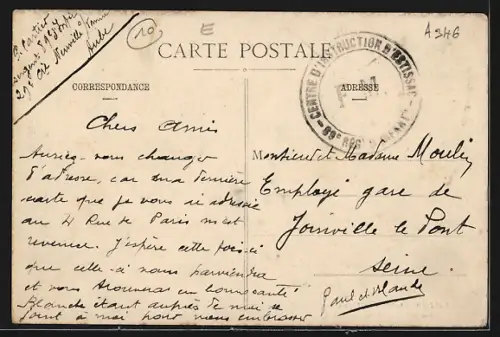 P. Cartier
Sergent 319
29e Cie Neuville s/ Vannes
Aube
10
E
A346
CARTE POSTALE
CORRESPONDANCE
ADRESSE
CENTRE D'INSTRUCTION D'ESTISSAC
F M
89e RÉGt
Chers Amis
Auriez-vous changer
d'adresse, car ma dernière
carte que je vous ai adressée
au 4 Rue de Paris m'est
revenue. J'espère cette fois-ci
que celle-ci vous parviendra
et vous trouvera en bonne santé
Blanche étant auprès de moi se
joint à moi pour vous embrasser
Monsieur et Madame Moulin
Employé gare de
Joinville le Pont
Seine.
Paul et Blanche